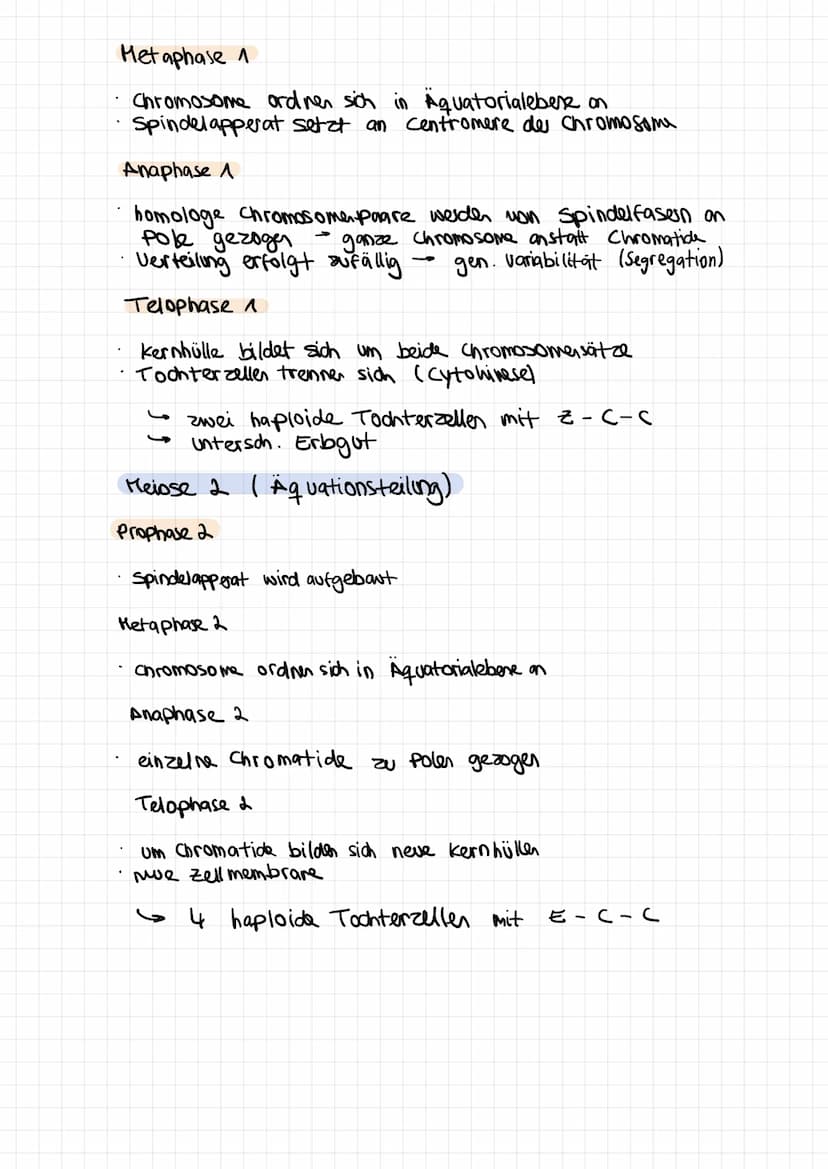 Metaphase 1
· Chromosome ordnen sich in Äquatorialebene an
· Spindelapperat setzt an Centromere der Chromosome
Anaphase 1
· homologe Chromosomenpaare werden von Spindelfasern an
Pole gezogen → ganze Chromosome anstatt Chromatide
· Verteilung erfolgt zufällig → gen. Variabilität (Segregation)
Telophase 1
· Kernhülle bildet sich um beide Chromosomensätze
· Tochterzellen trennen sich (Cytokinese)
↳ zwei haploide Tochterzellen mit Z-C-C
→ untersch. Erbgut
Meiose 2 (Äquationsteilung)
Prophase 2
· Spindelapperat wird aufgebaut
Metaphase 2
· Chromosome ordnen sich in Äquatorialebene an
Anaphase 2
· einzelne Chromatide zu Polen gezogen
Telophase 2
· um Chromatide bilden sich neue Kernhüllen
· neue Zellmembrane
↳ 4 haploide Tochterzellen mit E-C-C